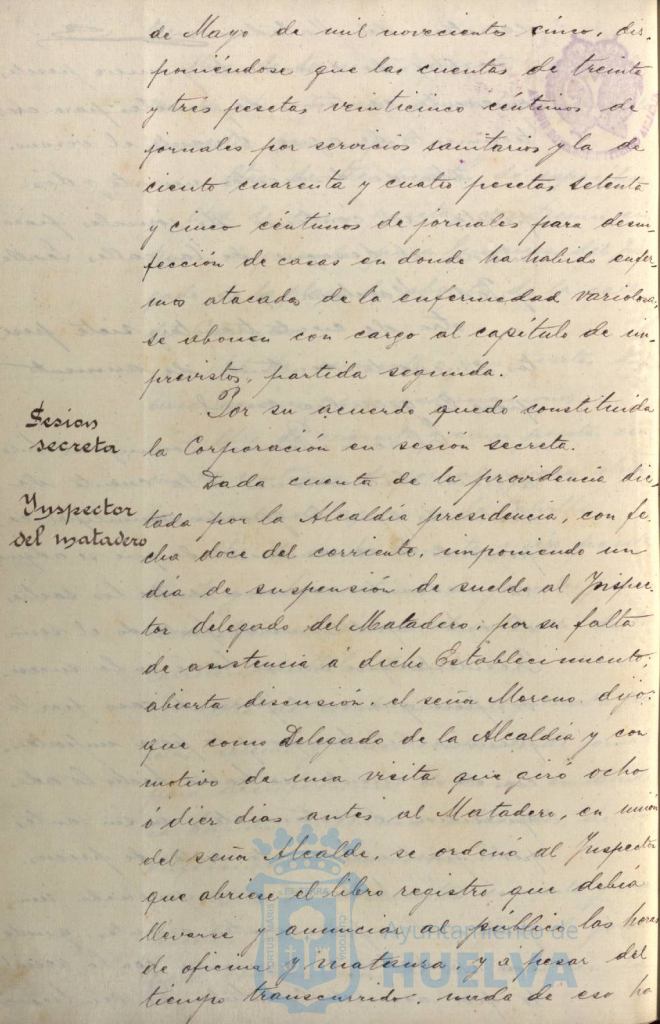 de Mayo de mil novecientos cinco, dis-
poniéndose que las cuentas de treinta
y tres pesetas veinticinco céntimos de
jornales por servicios sanitarios y la de
ciento cuarenta y cuatro pesetas setenta
y cinco céntimos de jornales para desin-
fección de casas en donde ha habido enfer-
mos atacados de la enfermedad variolosa,
se abonen con cargo al capítulo de im-
previstos, partida segunda.
Por su acuerdo quedó constituida
Sesion
secreta
la Corporación en sesión secreta.
Dada cuenta de la providencia dic-
Inspector
del matadero
tada por la Alcaldía presidencia, con fe-
cha doce del corriente, imponiendo un
día de suspensión de sueldo al Inspec-
tor delegado del Matadero, por su falta
de asistencia á dicho Establecimiento,
abierta discusión, el señor Moreno dijo:
que como Delegado de la Alcaldía y con
motivo de una visita que giró ocho
ó diez dias antes al Matadero, en unión
del señor Alcalde, se ordenó al Inspector
que abriese el libro registro que debía
llevarse y anunciar al público las horas
de oficina y matanza, y a pesar del
tiempo transcurrido, nada de eso ha
Ayuntamiento de
HUELVA